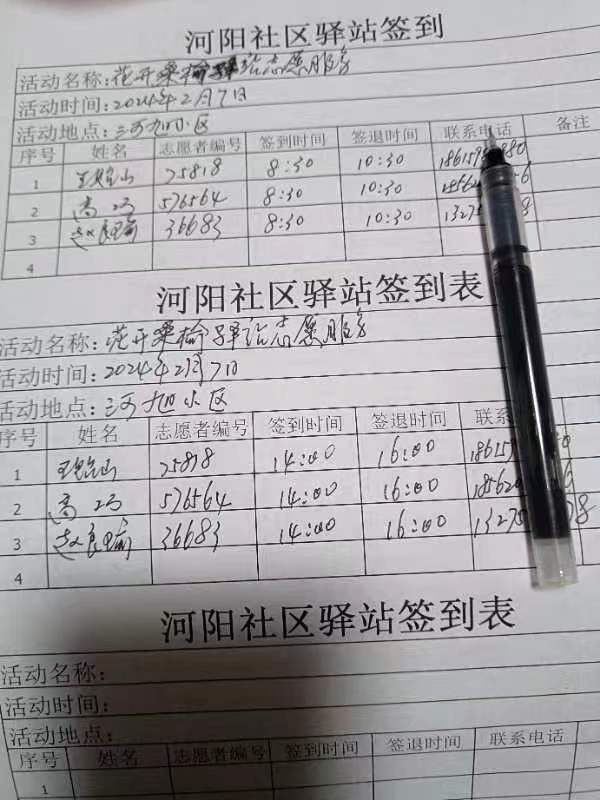 河阳社区驿站签到
活动名称:花开桑榆驿站志愿服务
活动时间:2024年2月7日
活动地点:三河旭小区
序号 姓名 志愿者编号 签到时间 签退时间 联系电话 备注
1 25818 8:30 10:30
2 高 576564 8:30 10:30
3 赵良瑜 36683 8:30 10:30
4
河阳社区驿站签到表
活动名称:花开桑榆驿站志愿服务
活动时间:2024年2月7日
活动地点:三河旭小区
序号 姓名 志愿者编号 签到时间 签退时间 联系
1 25818 14:00 16:00
2 高 576564 14:00 16:00
3 赵良瑜 36683 14:00 16:00
4
河阳社区驿站签到表
活动名称:
活动时间:
活动地点:
序号 姓名 志愿者编号 签到时间 签退时间 联系电话
1